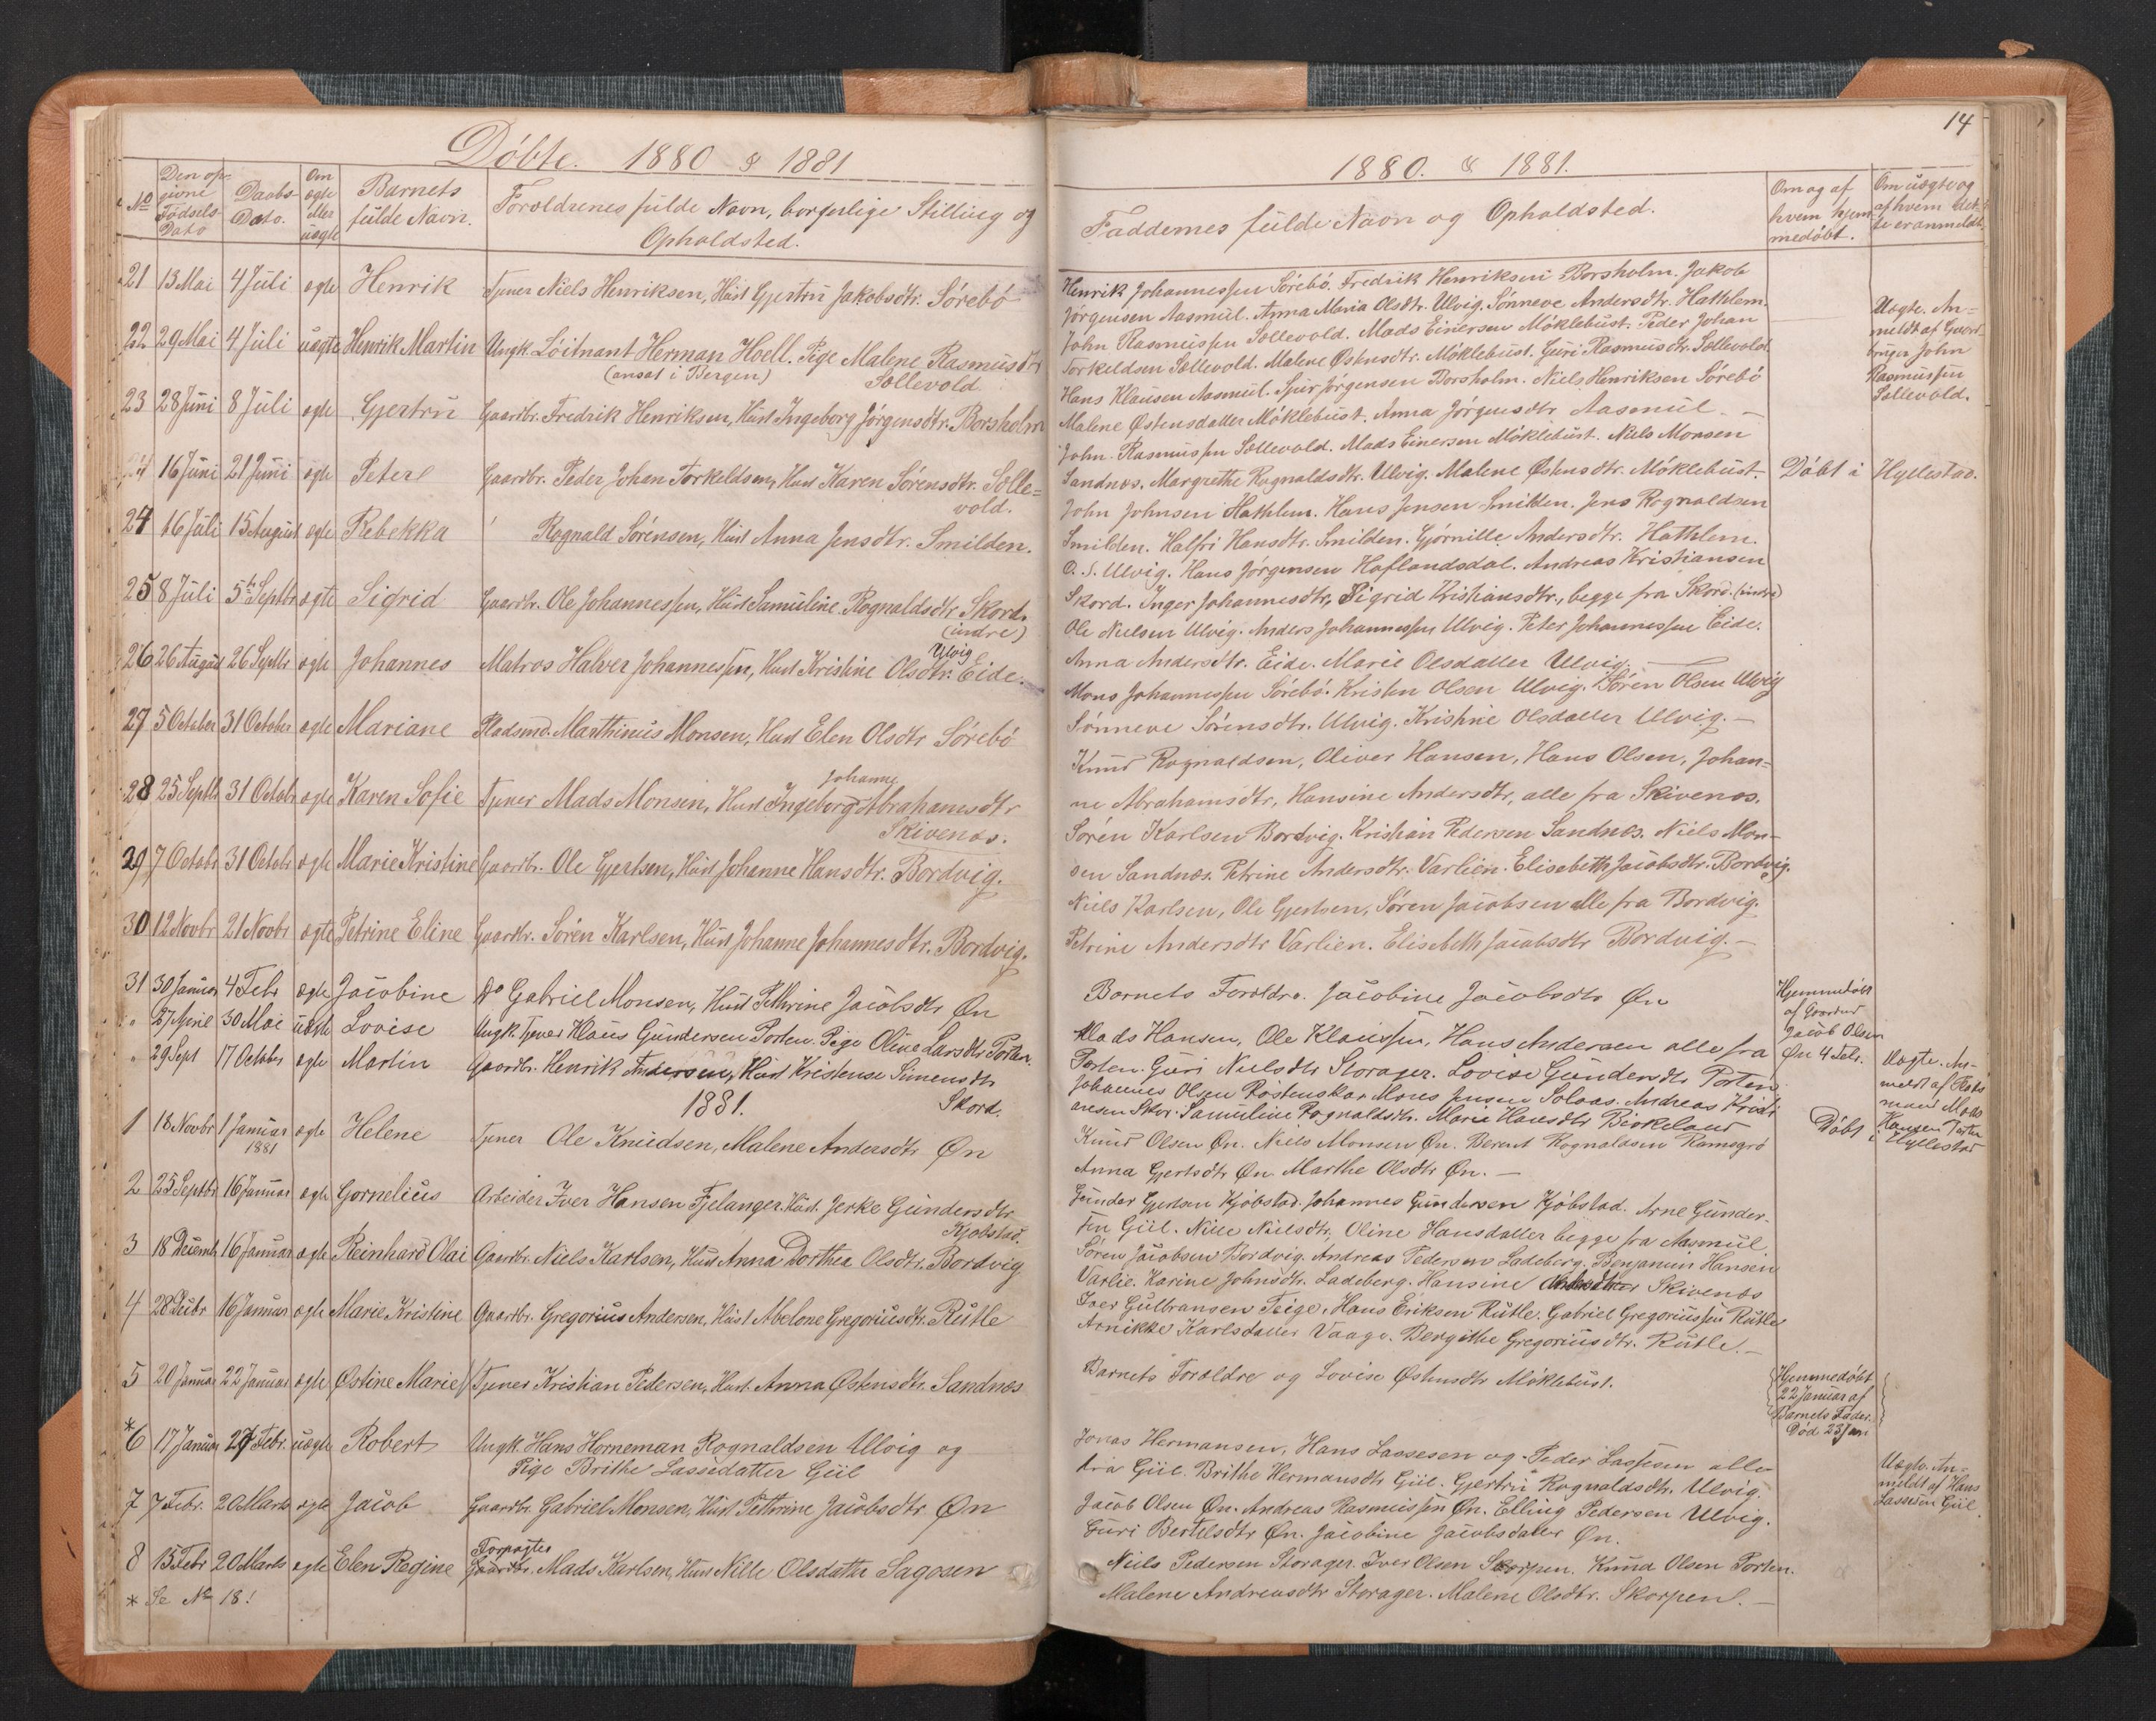 Döbte. 1880 & 1881
No
Den opgivne Födsels-Dato
Daabs-Dato.
Om ægte eller uægte
Barnets fulde Navn.
Forældrenes fulde Navn, borgerlige Stilling og Opholdsted.
21 13 Mai 4 Juli ægte Henrik Tjener Niels Henriksen, Hust Gjertru Jakobsdtr. Sörebö
22 29 Mai 4 Juli uægte Henrik Martin Ungk. Löitnant Herman Hoell. Pige Malene Rasmusdtr
(ansat i Bergen) Sællevold
23 28 Juni 8 Juli ægte Gjertru Gaardbr. Fredrik Henriksen, Hust Ingeborg Jörgensdtr. Borsholm
24 16 Juni 21 Juni ægte Peter Gaardbr. Peder Johan Torkeldsen, Hust Karen Sörensdtr. Sælle=
vold.
24 16 Juli 15 August ægte Rebekka Rognald Sörensen, Hust Anna Jensdtr. Smilden.
25 8 Juli 5te Septbr ægte Sigrid Gaardbr. Ole Johannessen, Hust Samuline Rognaldsdtr. Skord.
(indre)
26 26 August 26 Septbr ægte Johannes Matros Halver Johannessen, Hust Kristine Olsdtr. Ulvig Eide.
27 5 October 31 October ægte Mariane Pladsmd. Marthinus Monsen, Hust Elen Olsdtr Sörebö
28 25 Septbr 31 Octobr ægte Karen Sofie Tjener Mads Monsen, Hust Ingeborg Johanne Abrahamsdtr
Skivenæs.
29 7 Octobr 31 Octobr ægte Marie Kristine Gaardbr. Ole Gjertsen, Hust Johanne Hansdtr. Bordvig.
30 12 Novbr 21 Novbr ægte Petrine Eline Gaardbr. Sören Karlsen, Hust Johanne Johannesdtr. Bordvig.
31 30 Januar 4 Febr ægte Jacobine Do Gabriel Monsen, Hust Pethrine Jacobsdtr Øn
" 27 April 30 Mai uægte Lovise Ungk. Tjener Klaus Gundersen Porten. Pige Oline Larsdtr Porten.
" 29 Sept 17 October ægte Martin Gaardbr. Henrik Andersen, Hust Kristense Simensdtr
Skord.
1881.
1 18 Novbr 1 Januar 1881 ægte Helene Tjener Ole Knudsen, Malene Andersdtr Øn
2 25 Septbr 16 Januar ægte Gornelius Arbeider Iver Hansen Fjelanger. Hust. Jerke Gundersdtr
Kjöbstad.
3 18 Decemb 16 Januar ægte Reinhard Olai Gaardbr. Niels Karlsen, Hust Anna Dorthea Olsdtr. Bordvig
4 28 Decbr 16 Januar ægte Marie Kristine Gaardbr. Gregorius Andersen, Hust Abelone Gregoriusdtr. Rutle
5 20 Januar 22 Januar ægte Østine Marie Tjener Kristian Pedersen, Hust. Anna Østensdtr. Sandnæs
*6 17 Januar 27 Febr. uægte Robert Ungk. Hans Horneman Rognaldsen Ulvig og
Pige Brithe Lassedatter Giil
7 7 Febr. 20 Marts ægte Jacob Gaardbr. Gabriel Monsen, Hust. Pethrine Jacobsdtr Øn
8 15 Febr 20 Marts ægte Elen Regine Forpagter Gaardbr. Mads Karlsen, Hust Nille Olsdatter Sagøen
* Se No 18!
14
1880. & 1881.
Faddernes fulde Navn og Opholdsted.
Om og af hvem hjemmedöbt.
Om uægte og af hvem dette er anmeldt.
Henrik Johannessen Sörebö. Fredrik Henriksen Borsholm. Jakob
Jörgensen Aasmul. Anna Maria Olsdtr. Ulvig. Sönneve Andersdtr. Hathlem.
John Rasmussen Sællevold. Mads Einersen Möklebust. Peder Johan
Torkeldsen Sællevold. Malene Østensdtr. Möklebust. Guri Rasmusdtr. Sællevold.
Uægte. An=
meldt af Gaard-
bruger John
Rasmussen
Sællevold.
Hans Klausen Aasmul. Sjur Jörgensen Borsholm. Niels Henriksen Sörebö
Malene Østensdatter Möklebust. Anna Jörgensdtr Aasmul.
John Rasmussen Sællevold. Mads Einersen Möklebust. Niels Monsen
Sandnæs. Margrethe Rognaldsdtr. Ulvig. Malene Østensdtr. Möklebust. Döbt i Hyllestad.
John Johnsen Hathlem. Hans Jensen Smilden. Jens Rognaldsen
Smilden. Halfri Hansdtr. Smilden. Gjörnille Andersdtr. Hathlem.
O. S. Ulvig. Hans Jörgensen Haflandsdal. Andreas Kristiansen
Skord. Inger Johannesdtr, Sigrid Kristiansdtr., begge fra Skord. (indre)
Ole Nielsen Ulvig. Anders Johannessen Ulvig. Peter Johannessen Eide.
Anna Andersdtr. Eide. Marie Olsdatter Ulvig.
Mons Johannessen Sörebö. Kristen Olsen Ulvig. Sören Olsen Ulvig
Sönneve Sörensdtr. Ulvig. Kristine Olsdatter Ulvig.
Knud Rognaldsen, Oliver Hansen, Hans Olsen, Johan=
ne Abrahamsdtr, Hansine Andersdtr, alle fra Skivenæs.
Sören Karlsen Bordvig. Kristian Pedersen Sandnæs. Niels Mon-
sen Sandnæs. Petrine Andersdtr. Varlien. Elisabeth Jacobsdtr. Bordvig.
Niels Karlsen, Ole Gjertsen, Sören Jacobsen alle fra Bordvig.
Petrine Andersdtr Varlien. Elisabeth Jacobsdtr Bordvig.
Barnets Forældre. Jacobine Jacobsdtr Øn
Hjemmedöbt
af Gaardbr
Jacob Olsen
Øn 4 Febr.
Mads Hansen, Ole Klaussen, Hans Andersen alle fra
Porten. Guri Nielsdtr Storager. Lovise Gundersdtr Porten
Uægte. An-
meldt af
mand Mads
Hansen Porten
Johannes Olsen Röstenskar Mons Jensen Solaas. Andreas Kristi
ansen Skor. Samuline Rognaldsdtr. Marie Hansdtr Birkeland
Döbt i Hyllestad
Knud Olsen Øn. Niels Monsen Øn. Berent Rognaldsen Ramsgrö
Anna Gjertsdtr Øn. Marthe Olsdtr Øn.
Gunder Gjertsen Kjöbstad. Johannes Gundersen Kjöbstad. Arne Gunder-
sen Giil. Nille Nielsdtr, Oline Hansdatter begge fra Aasmul.
Sören Jacobsen Bordvig. Andreas Pedersen Ladeberg. Benjamin Hansen
Varlie. Karine Johnsdtr. Ladeberg. Hansine Skivenæs
Iver Gulbransen Teige. Hans Eriksen Rutle. Gabriel Gregoriussen Rutle
Annikke Karlsdatter Vaage. Bergithe Gregoriusdtr. Rutle.
Barnets Forældre og Lovise Østensdtr Möklebust.
Hjemmedöbt
22 Januar af
Barnets Fader.
Död 23 Jan
Jonas Hermansen, Hans Lassesen og Peder Lassesen alle
fra Giil. Brithe Hermansdtr Giil. Gjertru Rognaldsdtr. Ulvig.
Uægte. An-
meldt af Hans
Lassesen Giil.
Jacob Olsen Øn. Andreas Rasmussen Øn. Elling Pedersen Ulvig.
Guri Bertelsdtr Øn. Jacobine Jacobsdatter Øn.
Niels Pedersen Storager. Iver Olsen Skorpen. Knud Olsen Porten.
Malene Andreasdtr Storager. Malene Olsdtr. Skorpen.